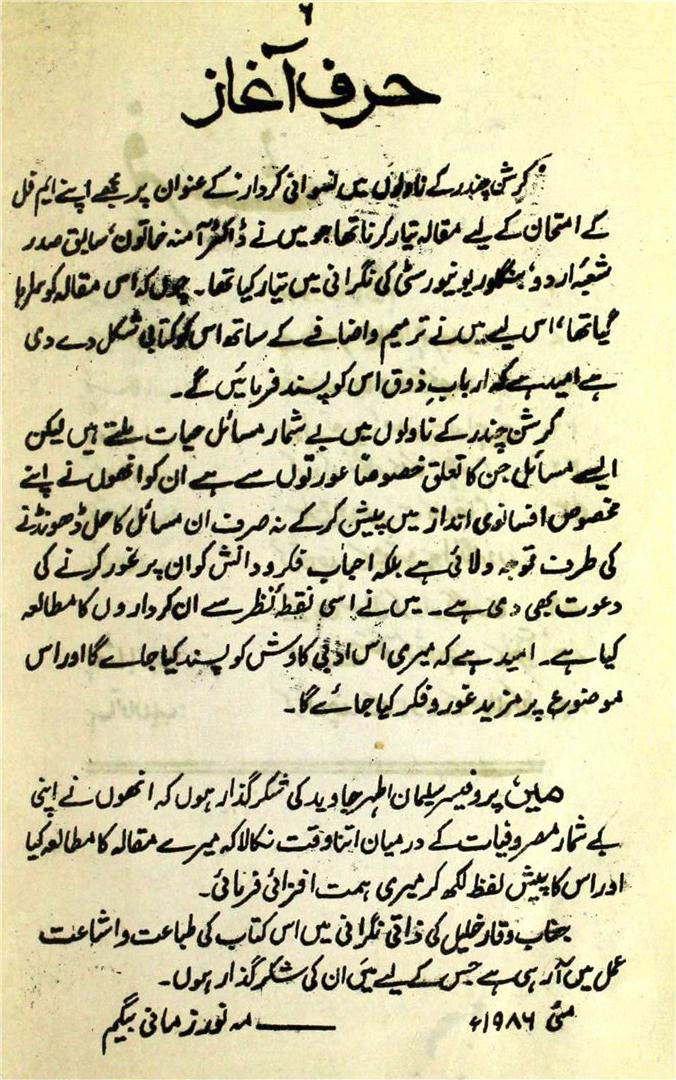 ۶
حرف آغاز
کرشن چندر کے ناولوں میں نسوانی کردار کے عنوان پر مجھے اپنے ایم فل
کے امتحان کے لیے مقالہ تیار کرنا تھا جو میں نے ڈاکٹر آمنہ خاتون، سابق صدر
شعبۂ اردو، بنگلور یونیورسٹی کی نگرانی میں تیار کیا تھا۔ چوں کہ اس مقالہ کو سراہا
گیا تھا، اس لیے میں نے ترمیم و اضافے کے ساتھ اس کو کتابی شکل دے دی
ہے امید ہے کہ ارباب ذوق اس کو پسند فرمائیں گے۔
کرشن چندر کے ناولوں میں بے شمار مسائل حیات ملتے ہیں لیکن
ایسے مسائل جن کا تعلق خصوصاً عورتوں سے ہے ان کو انھوں نے اپنے
مخصوص افسانوی انداز میں پیش کر کے نہ صرف ان مسائل کا حل ڈھونڈنے
کی طرف توجہ دلائی ہے بلکہ احباب فکر و دانش کو ان پر غور کرنے کی
دعوت بھی دی ہے۔ میں نے اسی نقطۂ نظر سے ان کرداروں کا مطالعہ
کیا ہے۔ امید ہے کہ میری اس ادبی کاوش کو پسند کیا جائے گا اور اس
موضوع پر مزید غور و فکر کیا جائے گا۔
میں پروفیسر سلیمان اطہر جاوید کی شکر گذار ہوں کہ انھوں نے اپنی
بے شمار مصروفیات کے درمیان اتنا وقت نکالا کہ میرے مقالہ کا مطالعہ کیا
اور اس کا پیش لفظ لکھ کر میری ہمت افزائی فرمائی۔
جناب وقار خلیل کی ذاتی نگرانی میں اس کتاب کی طباعت و اشاعت
عمل میں آرہی ہے جس کے لیے میں ان کی شکر گذار ہوں۔
مئی ۱۹۸۶ء ——— مہ نور زمانی بیگم